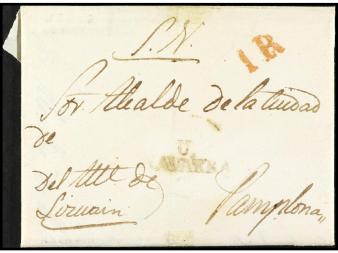 S. N.
1R
Sor Alcalde de la Ciudad
de
U
NAVARRA
Del Alle de
Lizuain
Pamplona